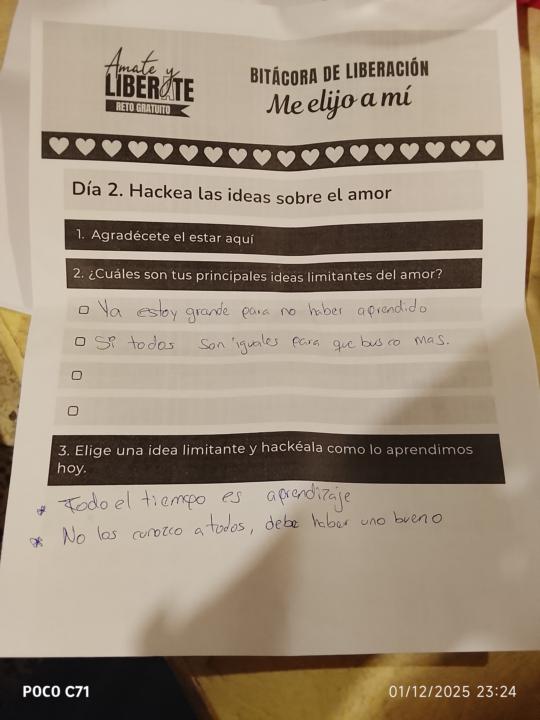 Amate y
LIBERATE
RETO GRATUITO
BITÁCORA DE LIBERACIÓN
Me elijo a mí
Día 2. Hackea las ideas sobre el amor
1. Agradécete el estar aquí
2. ¿Cuáles son tus principales ideas limitantes del amor?
Ya estoy grande para no haber aprendido
Si todos son iguales para que busco mas.
3. Elige una idea limitante y hackéala como lo aprendimos
hoy.
* Todo el tiempo es aprendizaje
* No los conozco a todos, debe haber uno bueno
POCO C71
01/12/2025 23:24